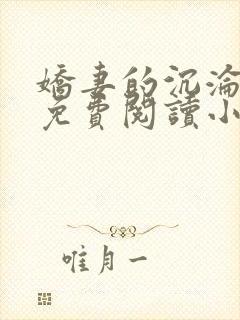 嬌妻的沉淪
免費閱讀小
唯月一